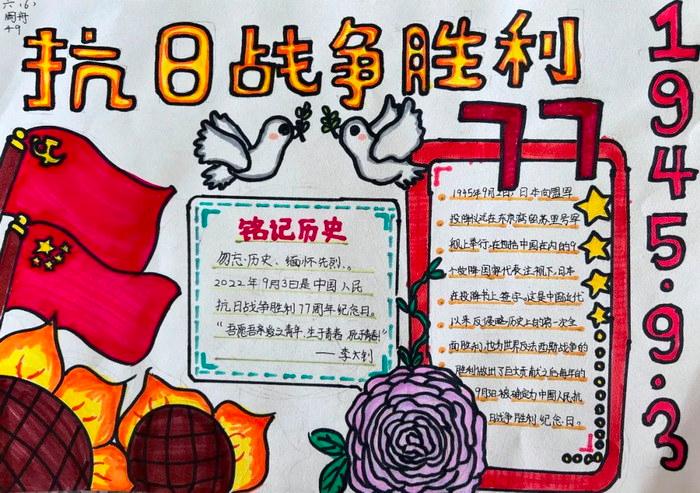 六.(6)
49
抗日战争胜利
77
1945.9.3
铭记历史
勿忘历史、缅怀先烈。
2022年9月3日是中国人民
抗日战争胜利77周年纪念日。
"吾愿吾亲爱之青年,生于青春 死于青春"
——李大钊
1945年9月2日,日本向盟军
投降仪式在东京湾的苏里号军
舰上举行,在包括中国在内的9
个受降国家代表注视下,日本
在投降书上签字。这是中国近代
以来反侵略历史上的第一次全
面胜利,也为世界反法西斯战争的
胜利做出了巨大贡献之后每年的
9月3日被确定为中国人民抗
日战争胜利纪念日。